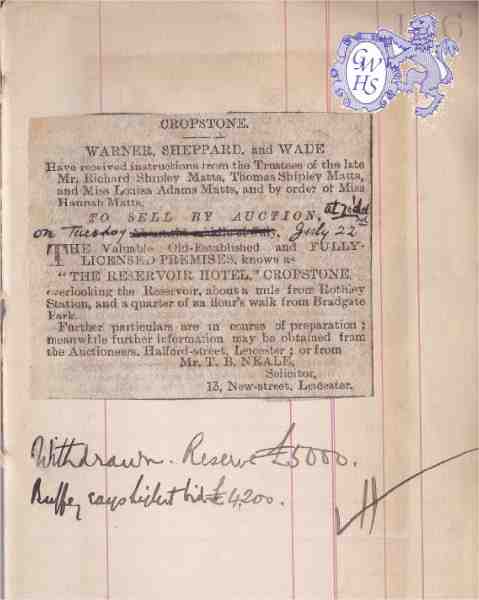 116
GWHS
CROPSTONE.
WARNER, SHEPPARD, and WADE
Have received instructions from the Trustees of the late
Mr. Richard Shipley Matts, Thomas Shipley Matts,
and Miss Louisa Adams Matts, and by order of Miss
Hannah Matts,
TO SELL BY AUCTION,
on Tuesday July 22nd
THE Valuable Old-Established and FULLY-
LICENSED PREMISES, known as
"THE RESERVOIR HOTEL," CROPSTONE,
overlooking the Reservoir, about a mile from Rothley
Station, and a quarter of an hour's walk from Bradgate
Park.
Further particulars are in course of preparation;
meanwhile further information may be obtained from
the Auctioneers, Halford-street, Leicester; or from
Mr. T. B. NEALE,
Solicitor,
13, New-street, Leicester.
Withdrawn. Reserve £5000.
says highest bid £4,200.